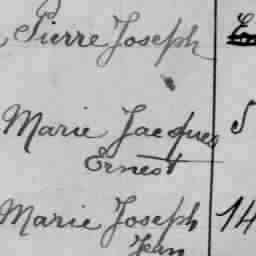 Pierre Joseph
Marie Jacques 5
Ernest
Marie Joseph 14
Jean